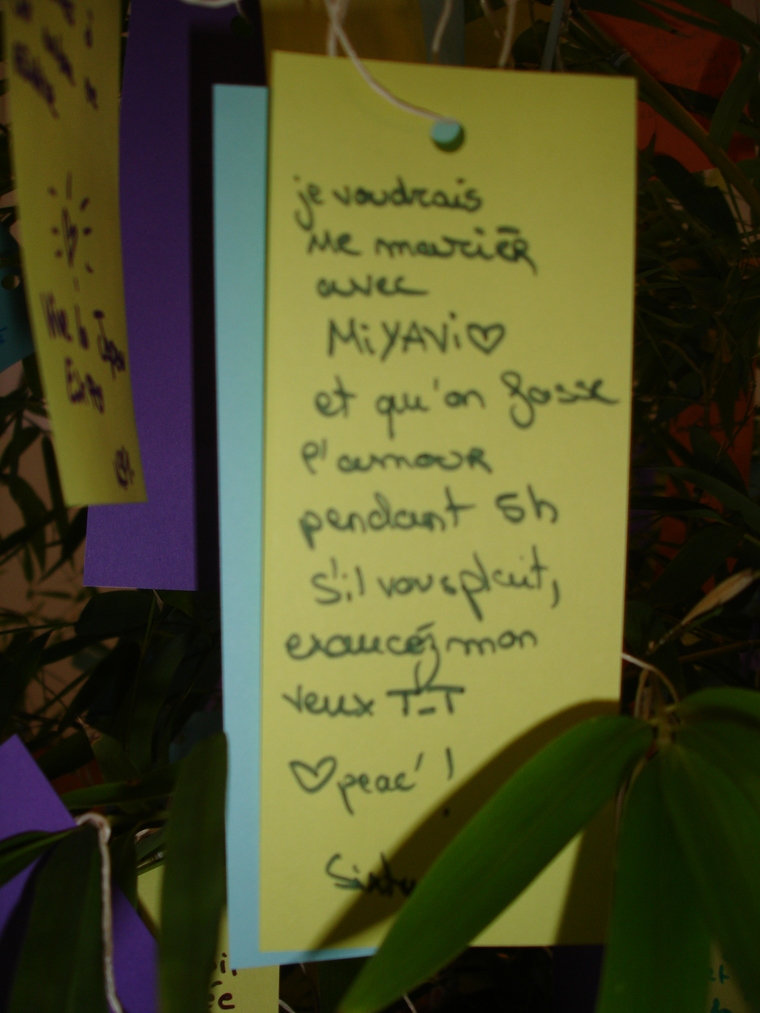 je voudrais
me marier
avec
MiYAVi♡
et qu'on fasse
l'amour
pendant 5h
s'il vous plait,
exaucéz mon
veux T_T
♡ peac' !
Vive la Japan
Expo